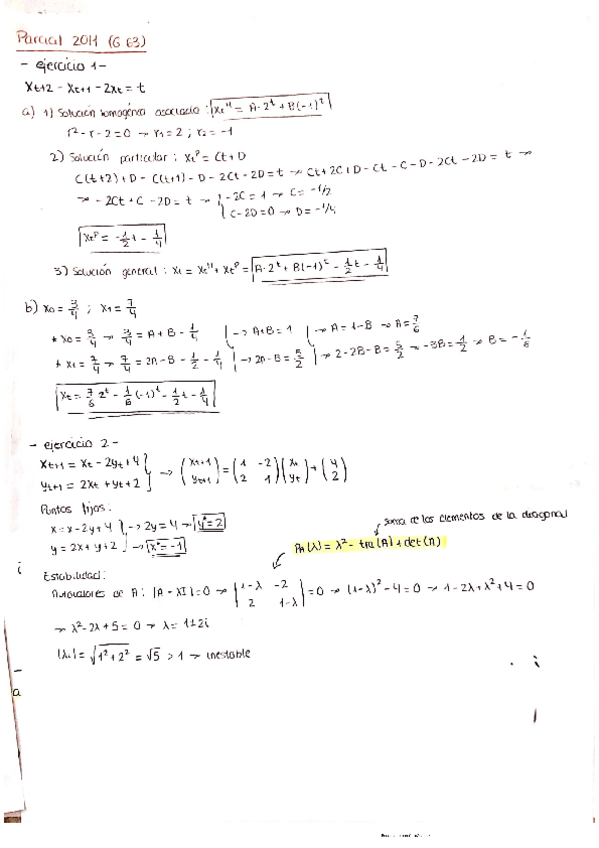 Parcial 2011 (G 63)
- ejercicio 1 -
Xt+2 - Xt+1 - 2Xt = t
a) 1) Solución homogénea asociada: Xt^H = A·2^t + B(-1)^t
r² - r - 2 = 0 → r1 = 2 ; r2 = -1
2) Solución particular: Xt^P = Ct + D
C(t+2) + D - C(t+1) - D - 2Ct - 2D = t → Ct + 2C + D - Ct - C - D - 2Ct - 2D = t →
→ -2Ct + C - 2D = t → { -2C = 1 → C = -1/2
C - 2D = 0 → D = -1/4
Xt^P = -1/2 t - 1/4
3) Solución general: Xt = Xt^H + Xt^P = A·2^t + B(-1)^t - 1/2 t - 1/4
b) X0 = 3/4 ; X1 = 7/4
* X0 = 3/4 → 3/4 = A + B - 1/4 | → A+B = 1 | → A = 1-B → A = 7/6
* X1 = 7/4 → 7/4 = 2A - B - 1/2 - 1/4 | → 2A - B = 5/2 | → 2 - 2B - B = 5/2 → -3B = 1/2 → B = -1/6
Xt = 7/6 2^t - 1/6 (-1)^t - 1/2 t - 1/4
- ejercicio 2 -
Xt+1 = Xt - 2yt + 4
yt+1 = 2Xt + yt + 2 } → (Xt+1 yt+1) = (1 -2 2 1)(Xt yt) + (4 2)
Puntos fijos:
x = x - 2y + 4 } → 2y = 4 → y* = 2
y = 2x + y + 2 → x* = -1
soma de los elementos de la diagonal
PA(λ) = λ² - tra(A)λ + det(A)
Estabilidad:
Autovalores de A: |A - λI| = 0 → |1-λ -2 2 1-λ| = 0 → (1-λ)² - 4 = 0 → 1 - 2λ + λ² + 4 = 0
→ λ² - 2λ + 5 = 0 → λ = 1±2i
|λ| = √1² + 2² = √5 > 1 → inestable